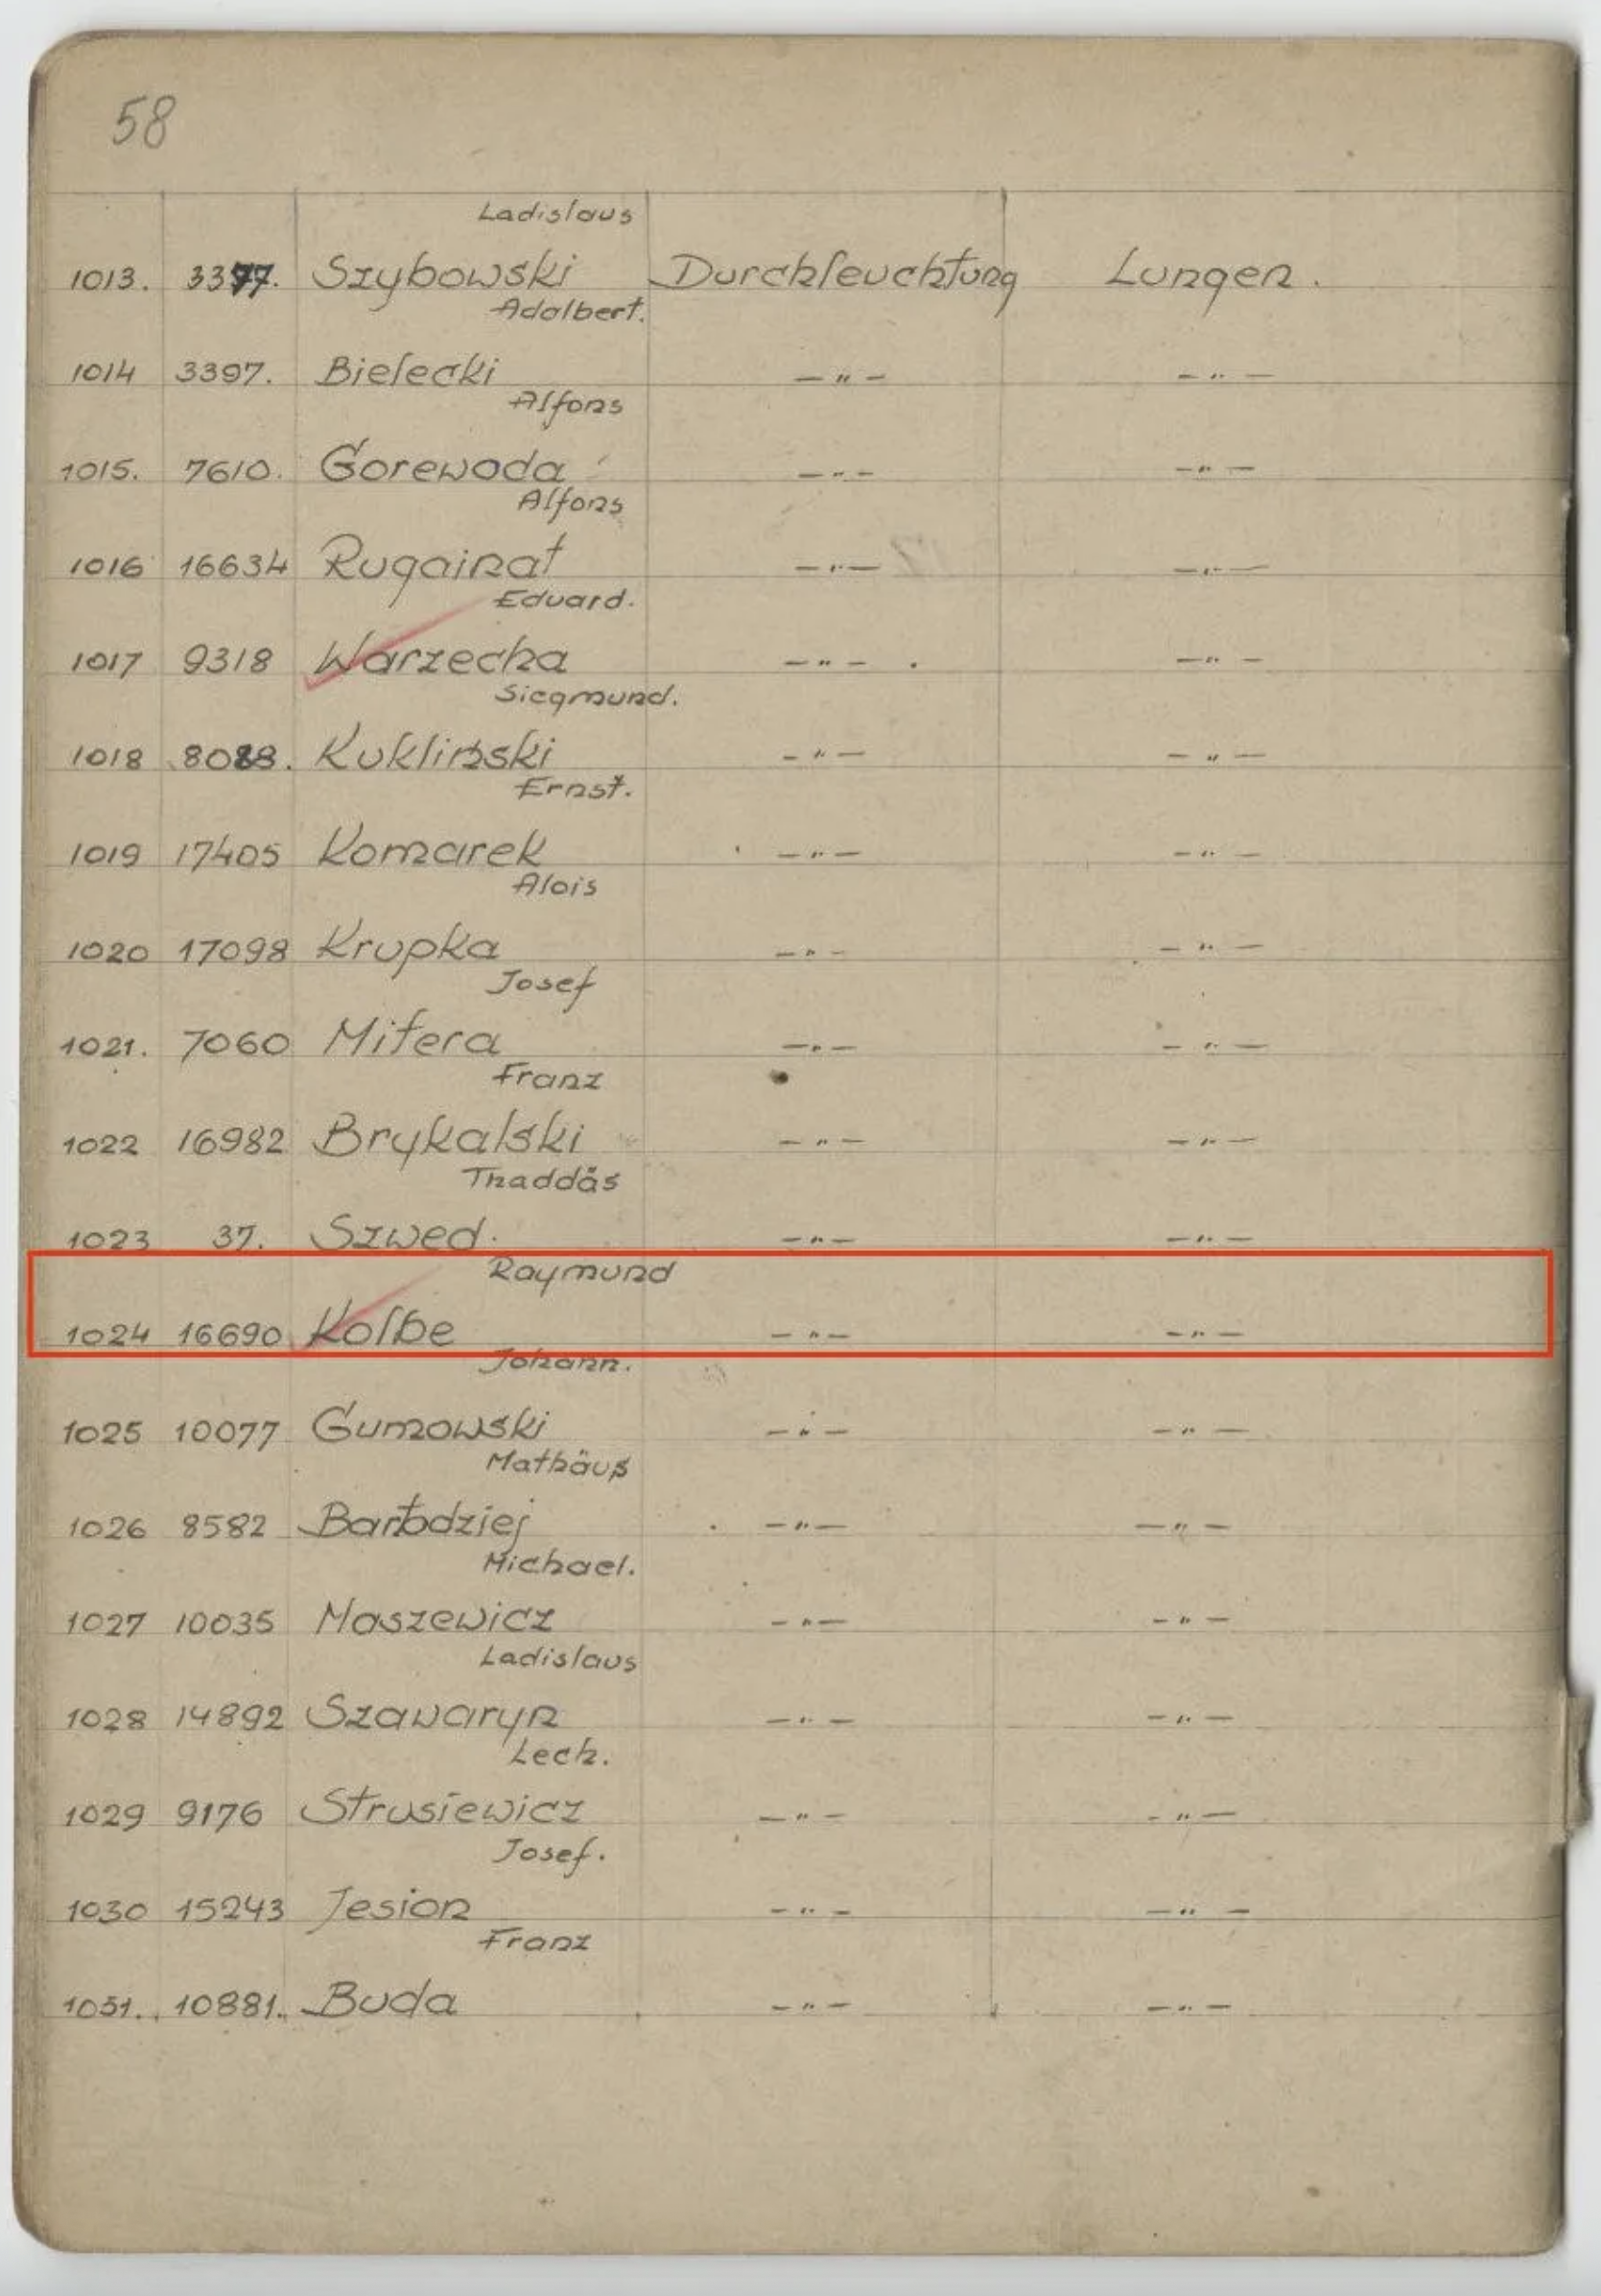 58
Ladislaus
1013. 3377. Szybowski Durchleuchtung Lungen.
Adalbert.
1014 3397. Bielecki —"— —"—
Alfons
1015. 7610. Gorewoda —"— —"—
Alfons
1016 16634 Rugainat —"— —"—
Eduard.
1017 9318 Warzecha —"— —"—
Siegmund.
1018 8088. Kuklinski —"— —"—
Ernst.
1019 17405 Komarek —"— —"—
Alois
1020 17098 Krupka —"— —"—
Josef
1021. 7060 Mitera —"— —"—
Franz
1022 16982 Brykalski —"— —"—
Thaddäs
1023 37. Szwed. —"— —"—
Raymund
1024 16690 Kolbe —"— —"—
Johann.
1025 10077 Gumowski —"— —"—
Mathäuß
1026 8582 Bartodziej —"— —"—
Michael.
1027 10035 Maszewicz —"— —"—
Ladislaus
1028 14892 Szawaryn —"— —"—
Lech.
1029 9176 Strusiewicz —"— —"—
Josef.
1030 15243 Jesion —"— —"—
Franz
1031. 10881. Buda —"— —"—